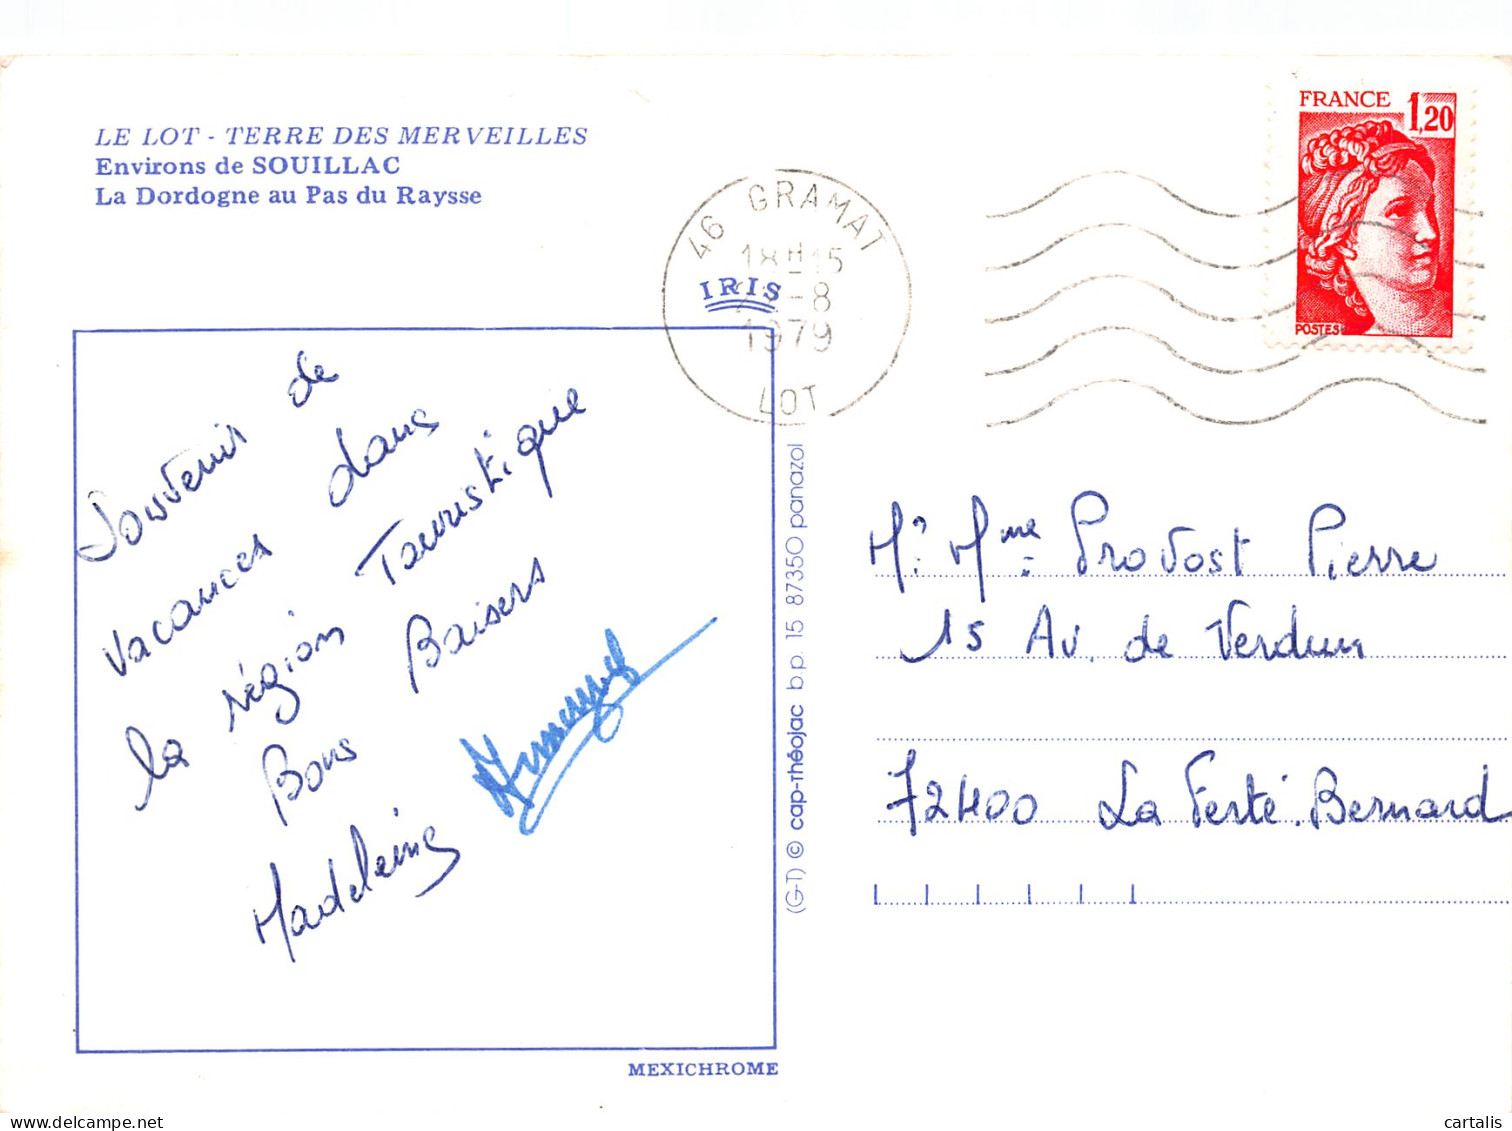 LE LOT - TERRE DES MERVEILLES
Environs de SOUILLAC
La Dordogne au Pas du Raysse
46 GRAMAT
18H15
-8
1979
LOT
IRIS
FRANCE 1,20
POSTES
Souvenir de
vacances dans
la région Touristique
Bons Baisers
Madeleine
MEXICHROME
(G-T) © cap-théojac b.p. 15 87350 panazol
Mr. Mme Provost Pierre
15 Av. de Verdun
72400 La Ferté.Bernard
delcampe.net
cartalis